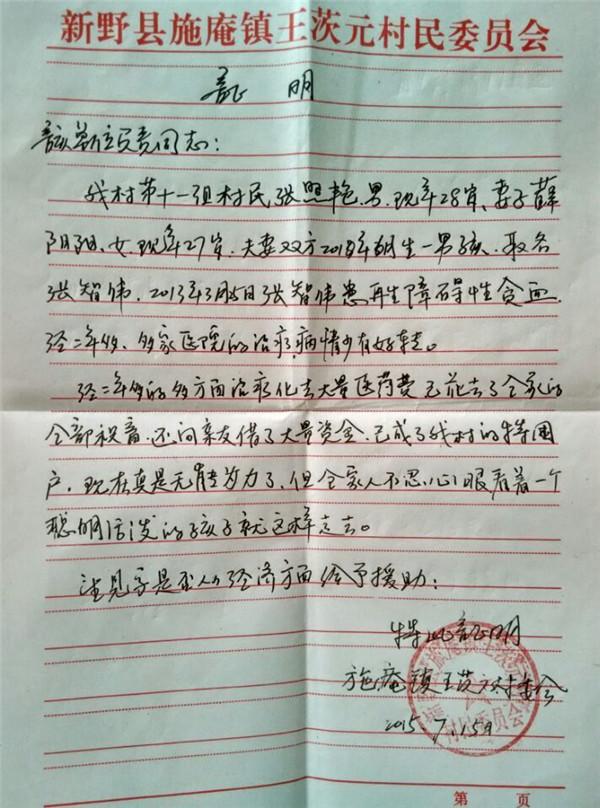 新野县施庵镇王茨元村民委员会
证 明
该单位负责同志：
我村第十一组村民张照艳，男，现年28岁、妻子薛
阴阳、女，现年27岁，夫妻双方2013年 生一男孩，取名
张智伟，2013年3月5日张智伟患再生障碍性贫血，
经二年多、多家医院的治疗，病情少有好转。
经二年多的多方面治疗化去大量医药费 花去了全家的
全部积蓄，还问亲友借了大量资金，已成了我村的特困
户，现在真是无能为力了，但全家人不忍心眼看着一个
聪明活泼的孩子就这样走去。
经济方面给予援助：
特此证明
施庵镇王茨 村委会
2015 7 15日
村民委员会
第 页